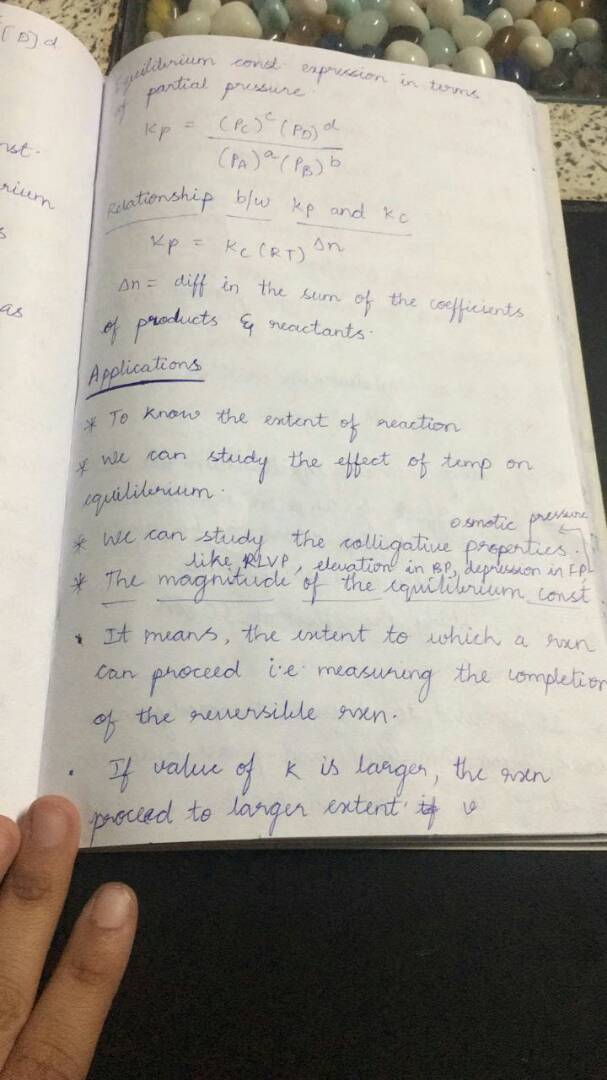 [D]d
nst.
rium
s
as
Equilibrium const. expression in terms
of partial pressure.
Kp = (Pc)^c (PD)^d
(PA)^a (PB)^b
Relationship b/w Kp and Kc
Kp = Kc (RT) Δn
Δn = diff in the sum of the coefficients
of products & reactants.
Applications
* To know the extent of reaction
* We can study the effect of temp on
equilibrium.
osmotic pressure
* We can study the colligative properties.
like, RLVP, elevation in BP, depression in FP
* The magnitude of the equilibrium const
• It means, the extent to which a rxn
can proceed i.e. measuring the completion
of the reversible rxn.
• If value of K is larger, the rxn
proceed to larger extent